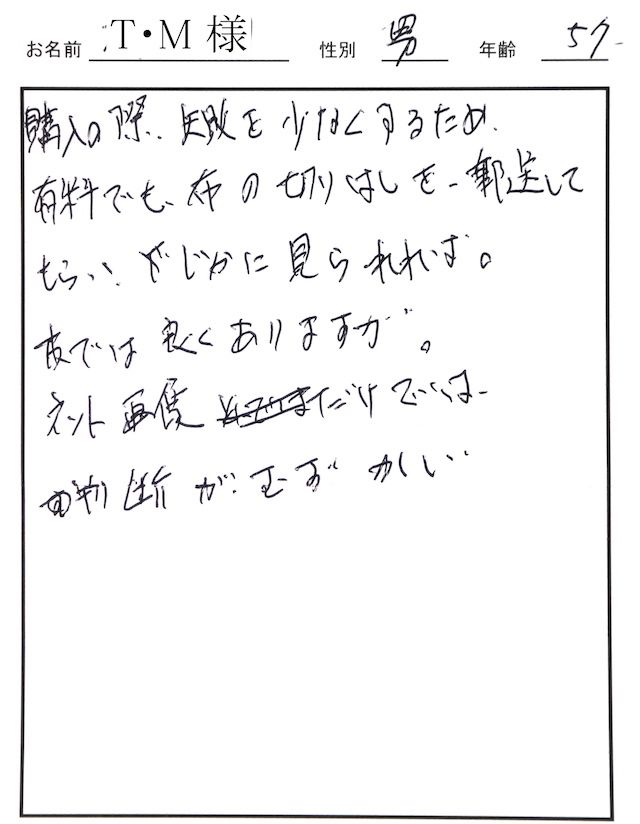 お名前 T・M 様 性別 男 年齢 57
購入の際、失敗を少なくするため、
有料でも、布の切りはしを、郵送して
もらい、まぢかに見られれば。
夜では良くありますが。
ネット画像だけでは、
判断がむずかしい